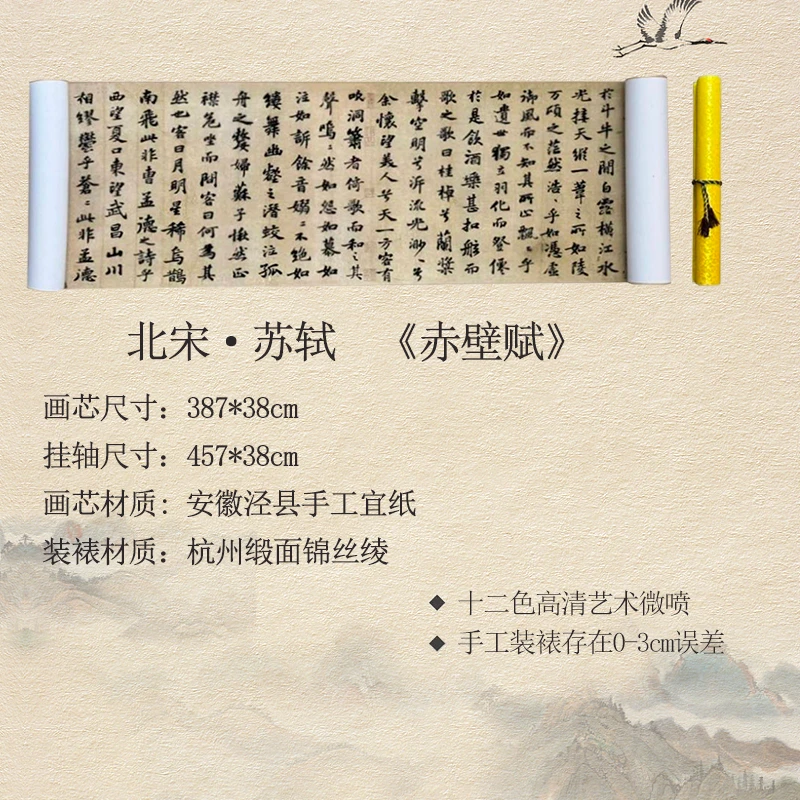 於斗牛之間白露橫江水
光接天縱一葦之所如陵
万頃之茫然浩〻乎如憑虛
御風而不知其所止飄〻乎
如遺世獨立羽化而登僊
於是飲酒樂甚扣舷而
歌之歌曰桂棹兮蘭槳
擊空明兮泝流光渺〻兮
余懷望美人兮天一方客有
吹洞簫者倚歌而和之其
聲嗚〻然如怨如慕如
泣如訴餘音嫋〻不絕如
縷舞幽壑之潛蛟泣孤
舟之嫠婦蘇子愀然正
襟危坐而問客曰何為其
然也客曰月明星稀烏鵲
南飛此非曹孟德之詩乎
西望夏口東望武昌山川
相繆鬱乎蒼〻此非孟德
北宋·苏轼 《赤壁赋》
画芯尺寸：387*38cm
挂轴尺寸：457*38cm
画芯材质：安徽泾县手工宜纸
装裱材质：杭州缎面锦丝绫
◆ 十二色高清艺术微喷
◆ 手工装裱存在0-3cm误差